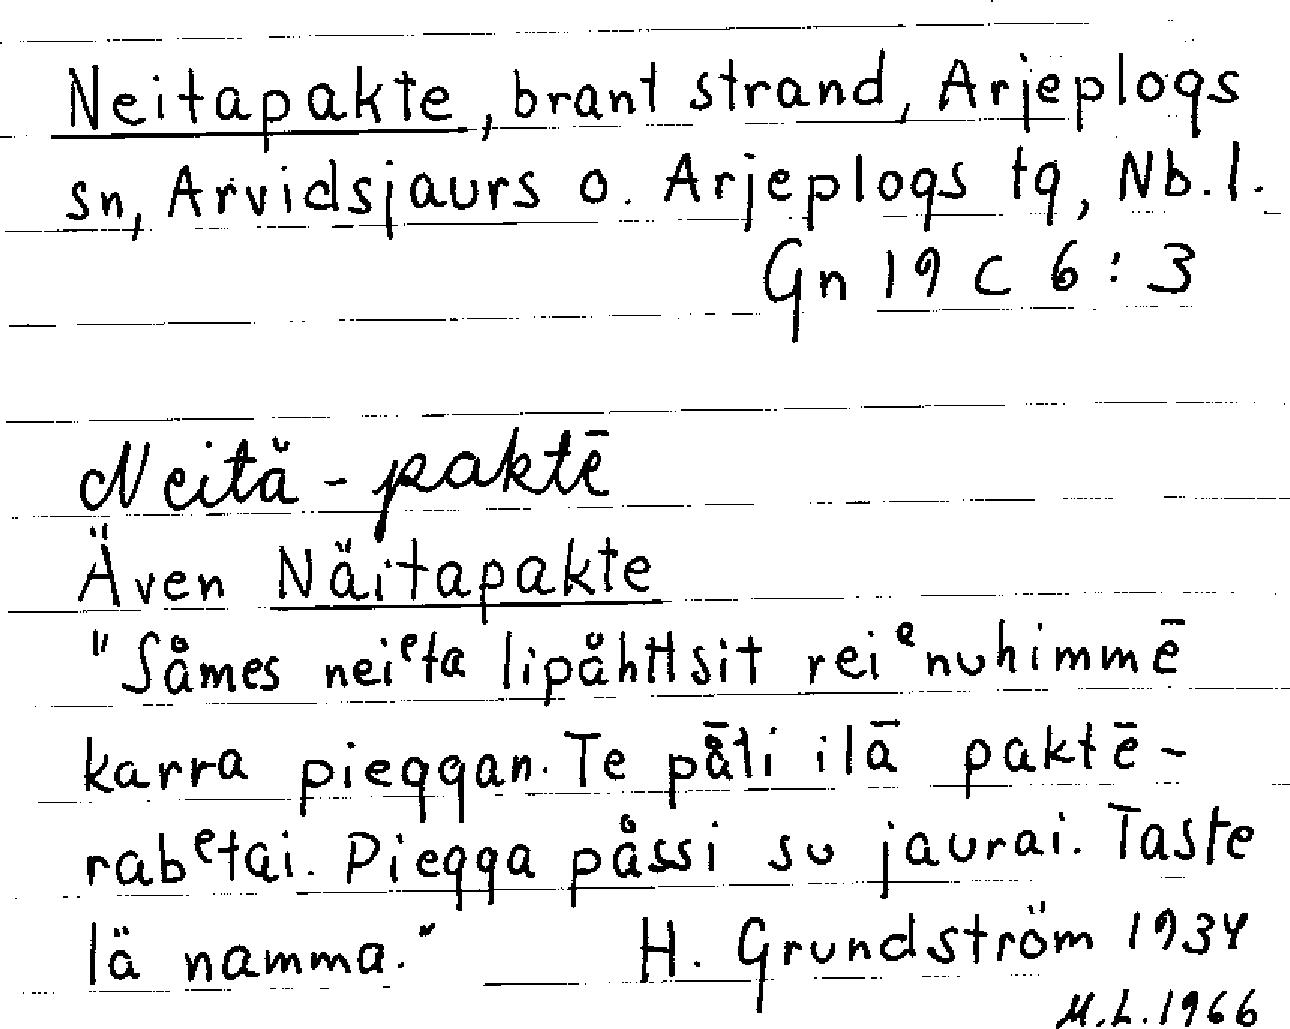 Neitapakte, brant strand, Arjeplogs
sn, Arvidsjaurs o. Arjeplogs tg, Nb. l.
Gn 19 C 6:3
Neită-paktē
Även Näitapakte
"Såmes neiᵉta lipåhttsit reiᵉnuhimmē
karra pieggan. Te på̄ti ilā paktē-
rabᵉtai. Piegga påssi su jaurai. Taste
lä namma." H. Grundström 1934
M.L. 1966